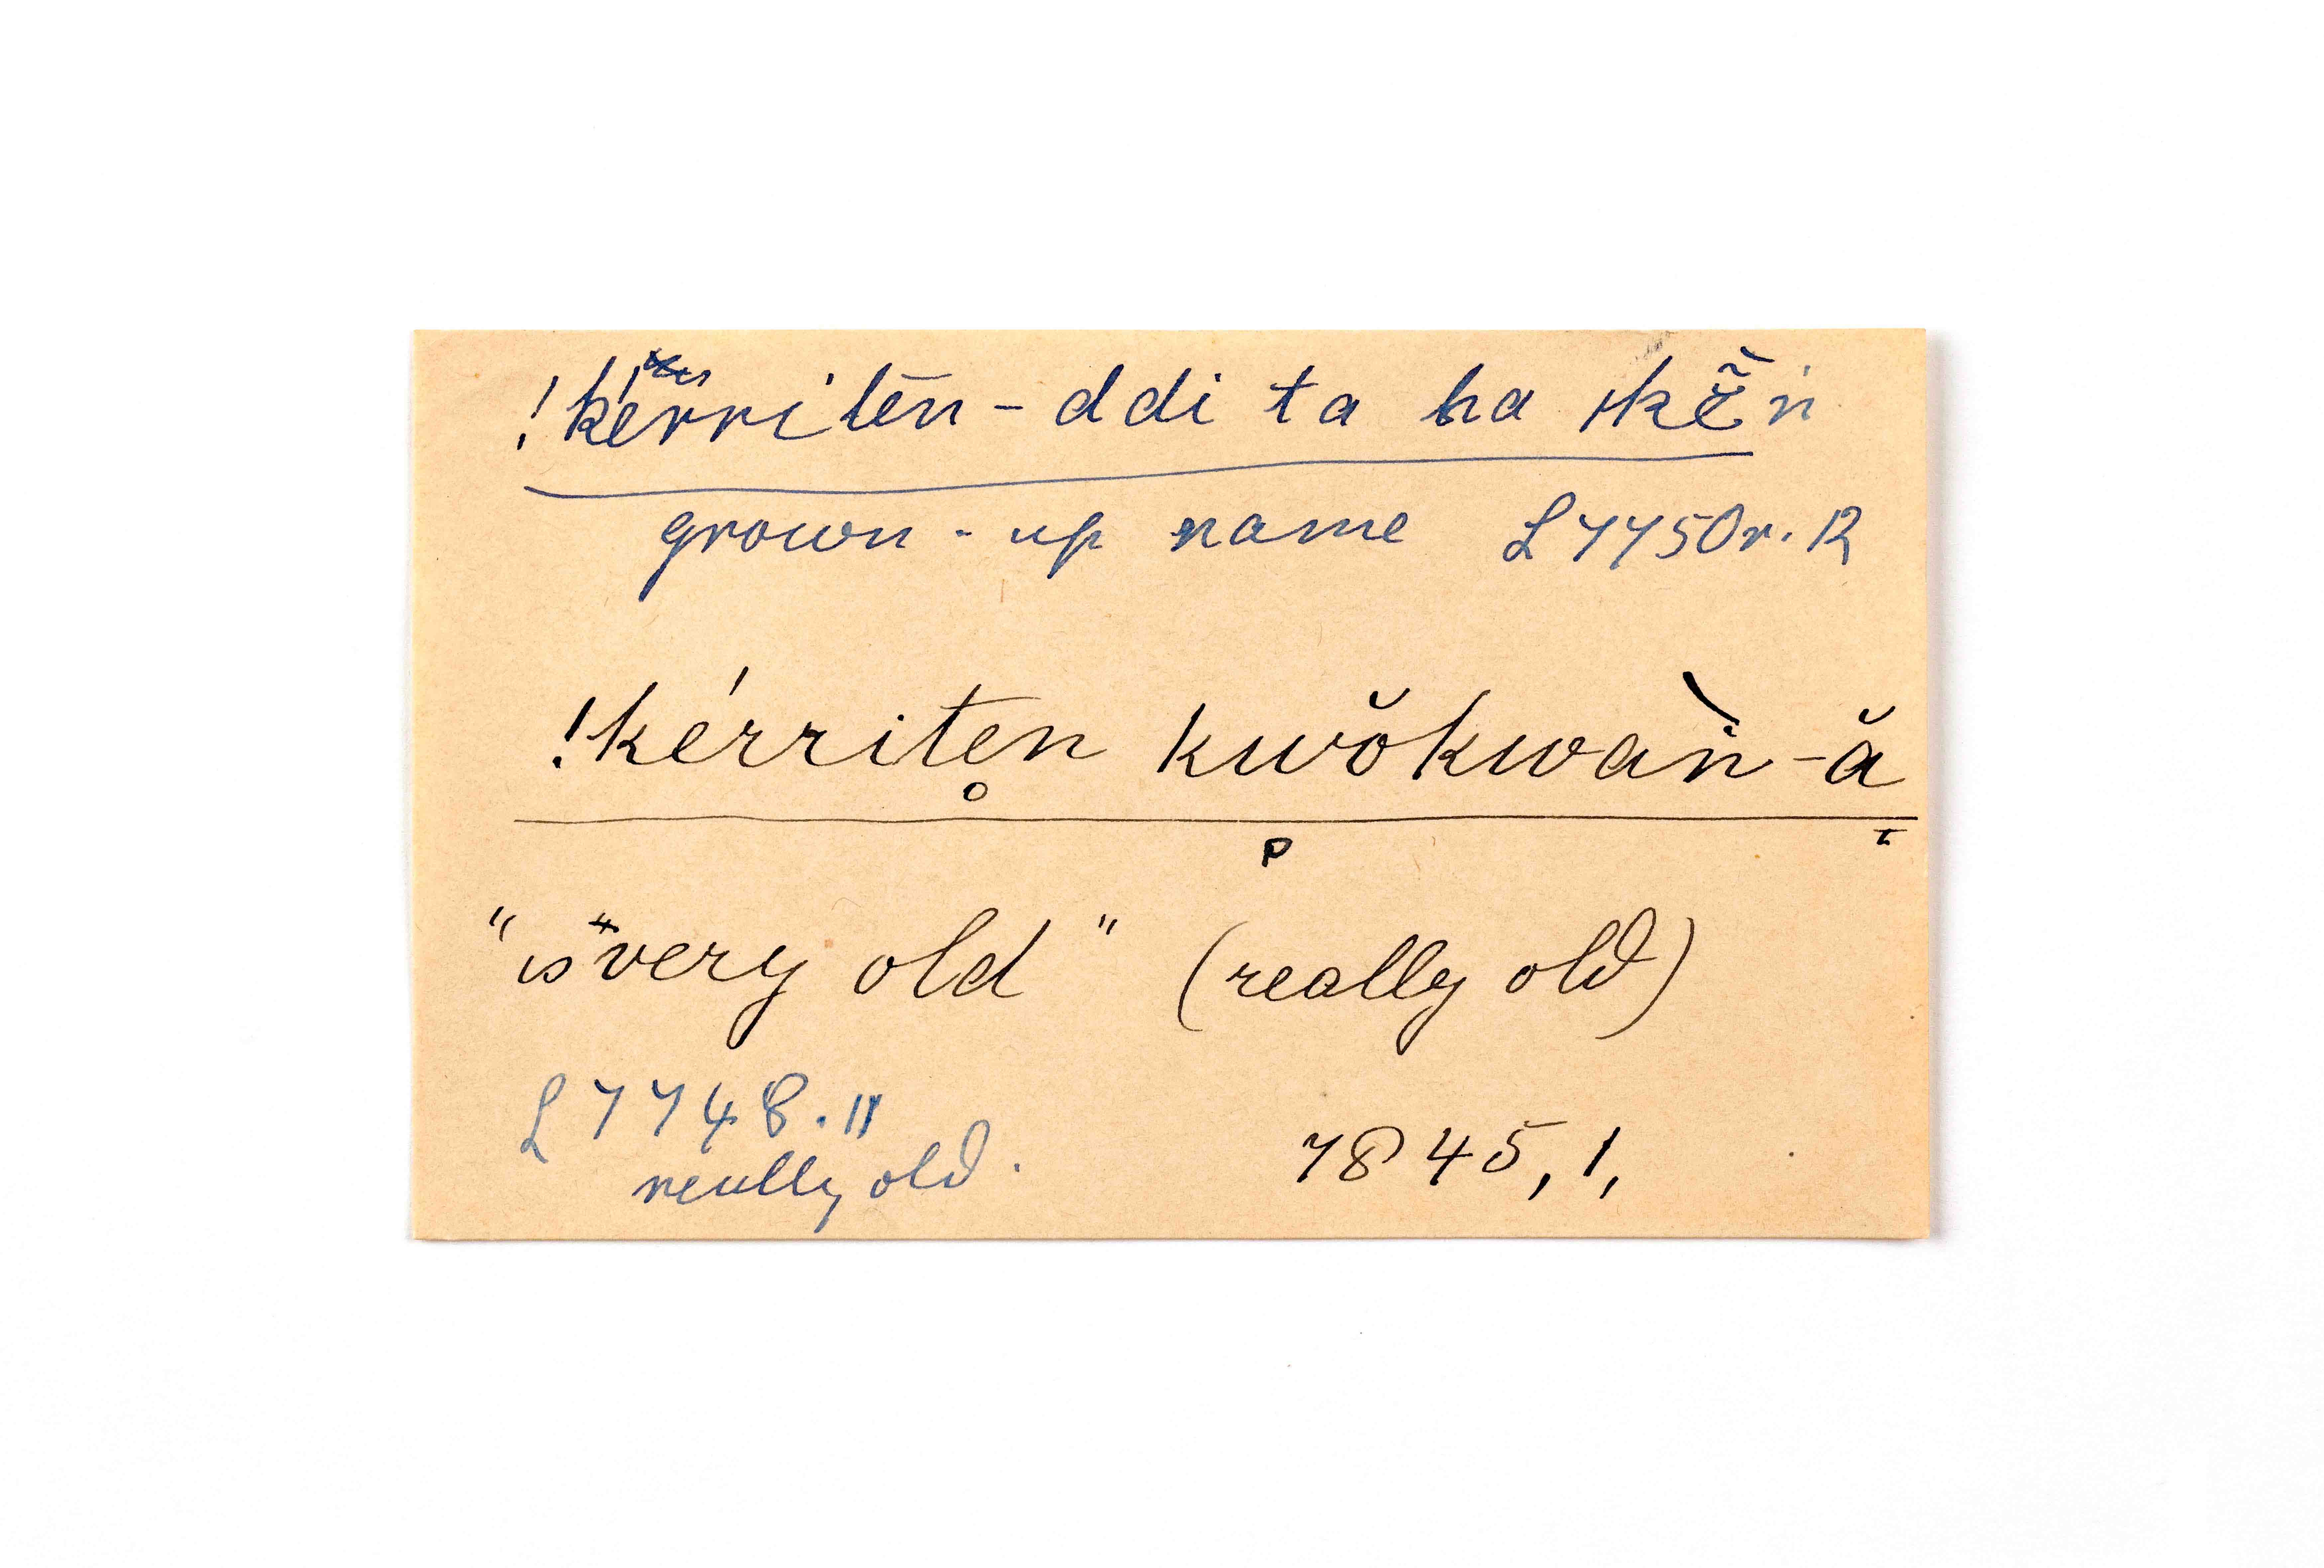 !kérritĕn-ddi ta ha ǀkẽ̆n
grown-up name L7750r.12
!kérritẹn kwŏkwaǹ-ă
"is very old" (really old)
L7748.11
really old.
7845,1,